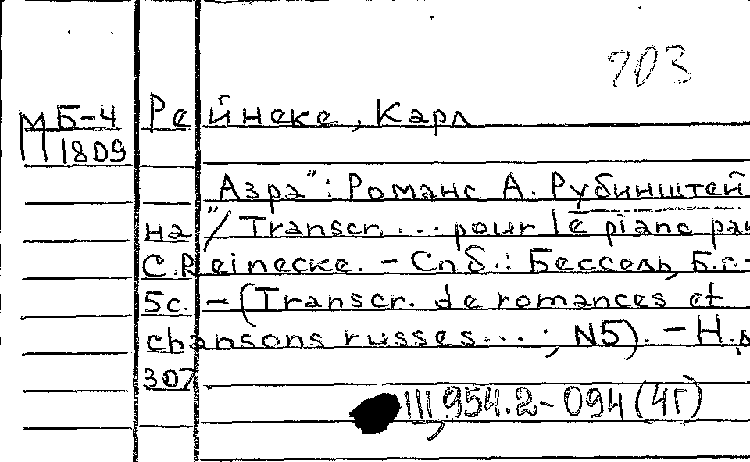 703
Б-4 Рейнеке, Карл
М 1809
Азра": Романс А. Рубинштей
на"/ Transcr. ... pour le piano par
C. Reinecke. – Спб.: Бессель, Б.г.-
5с. – (Transcr. de romances et
chansons russes...; N5). – Н.д
307
III, 954.2-094 (4Г)